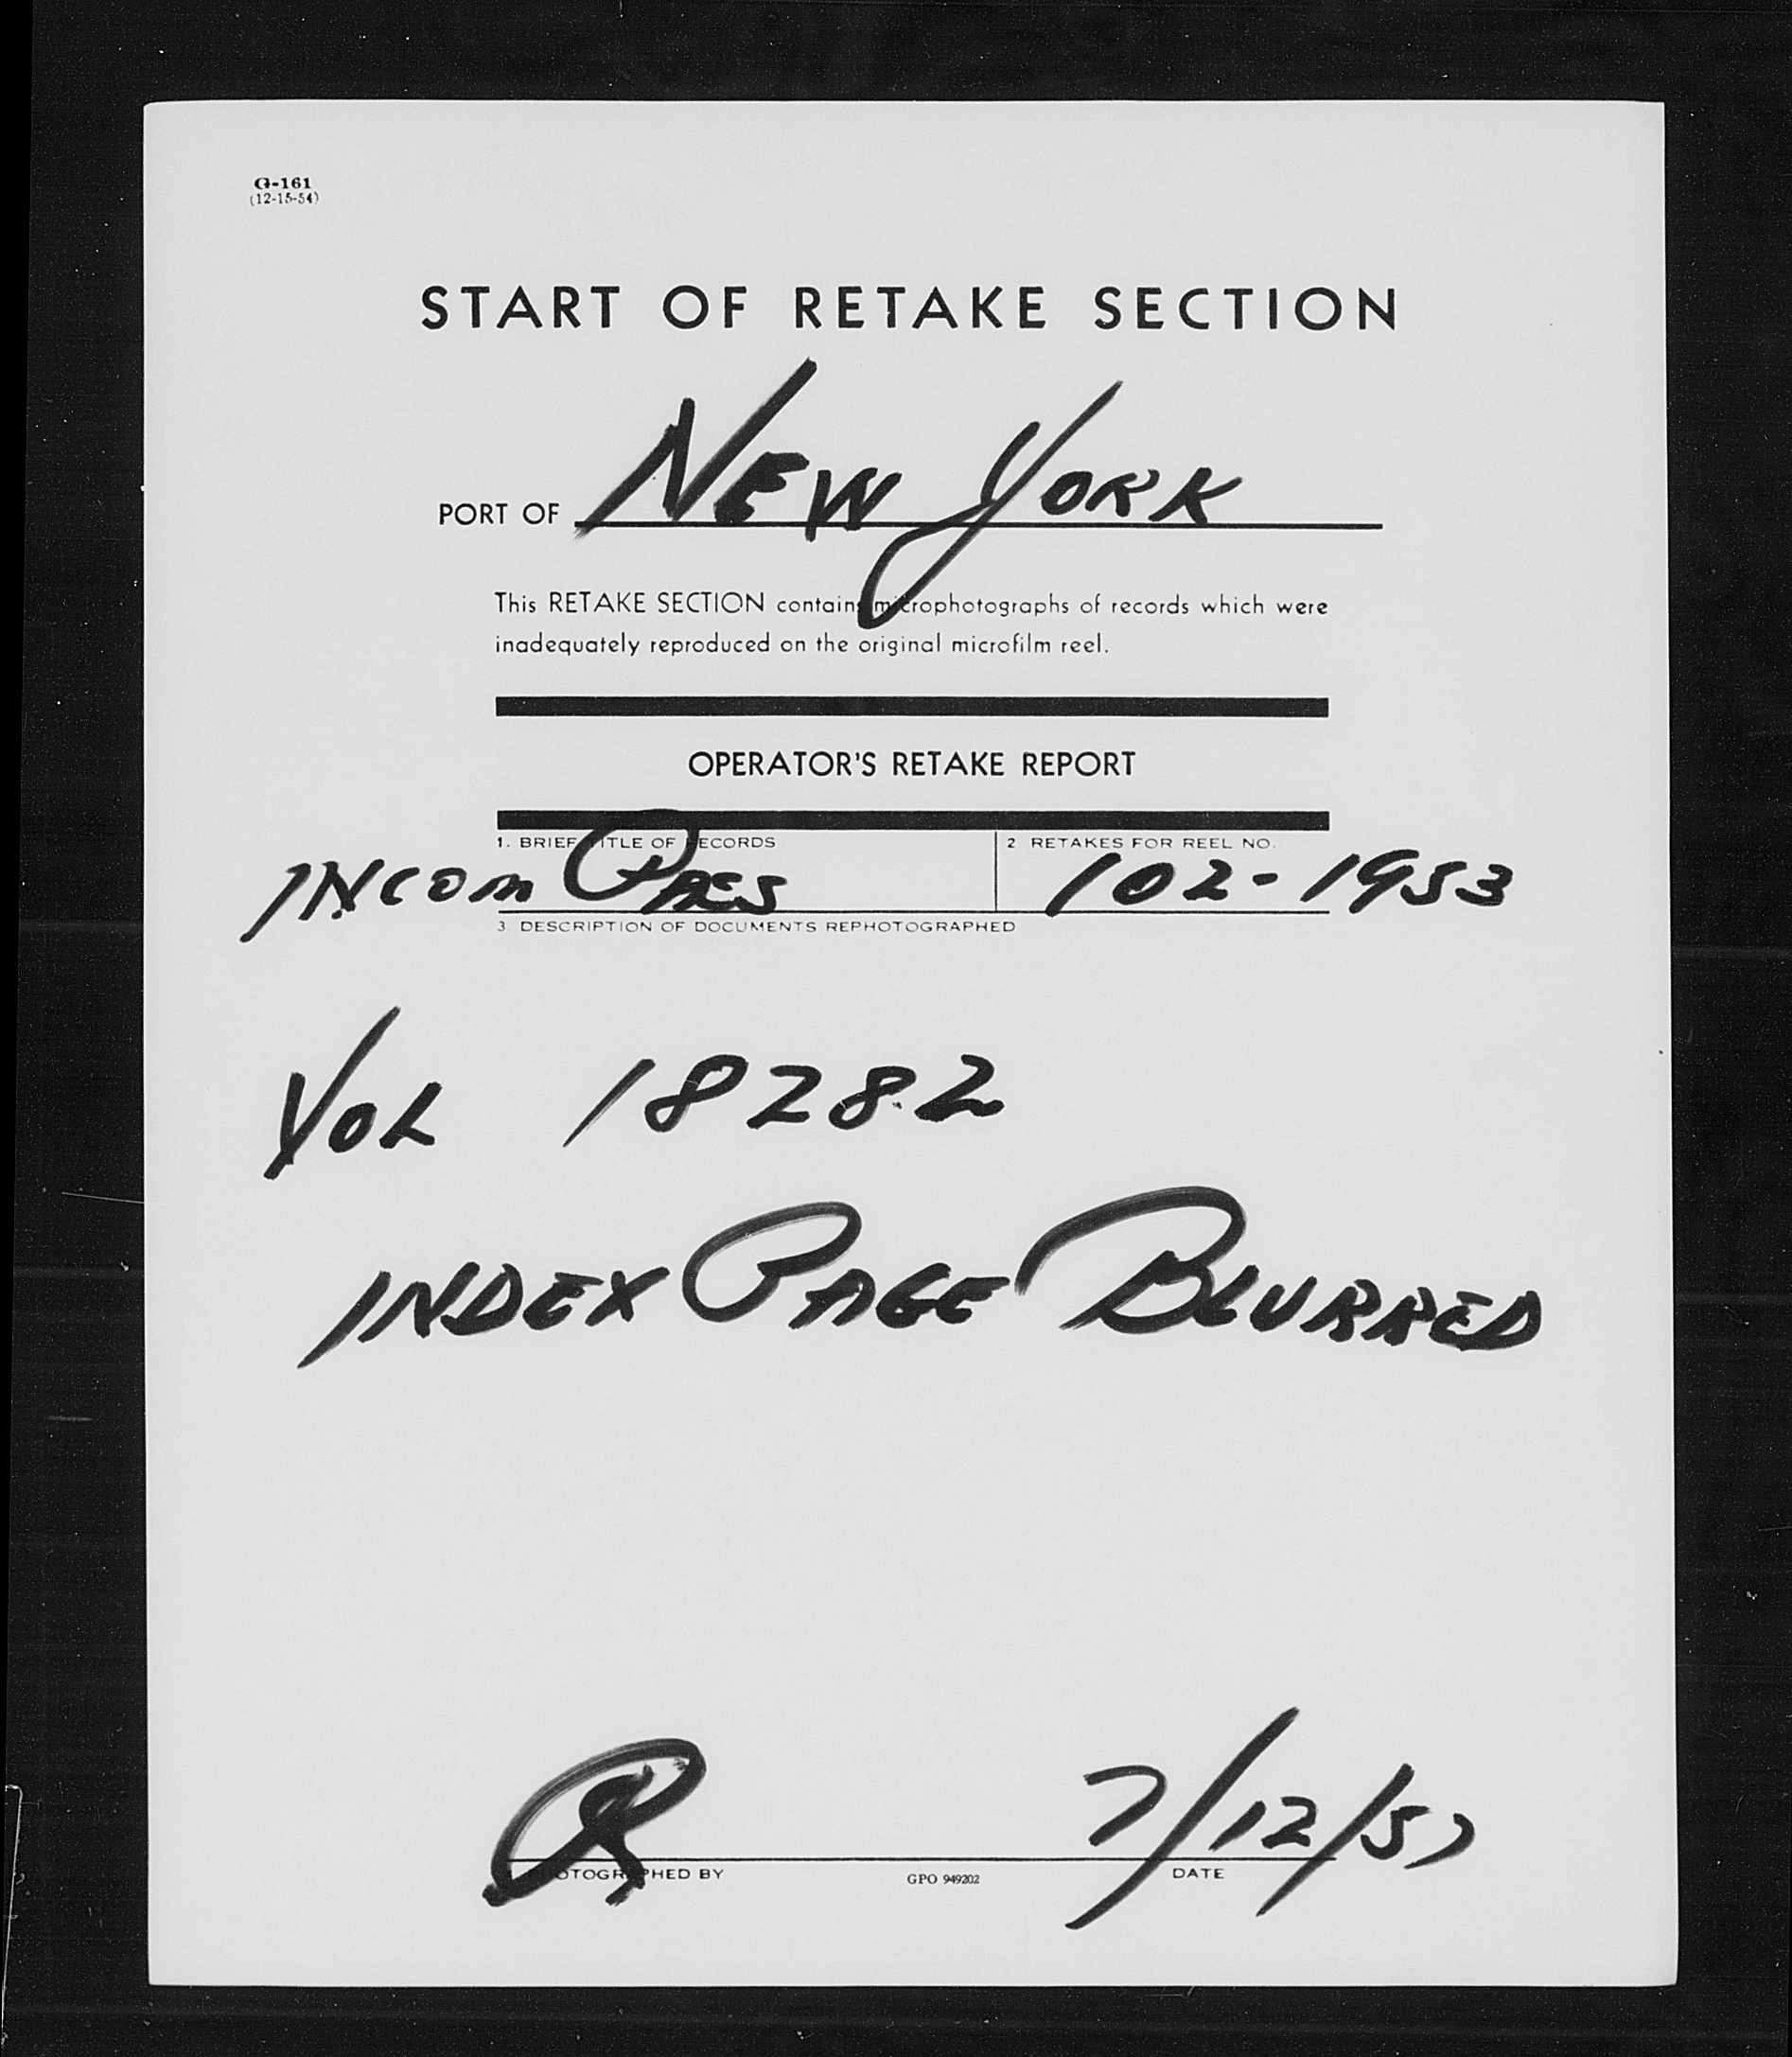 G-161
(12-15-54)
START OF RETAKE SECTION
PORT OF NEW YORK
This RETAKE SECTION contains microphotographs of records which were
inadequately reproduced on the original microfilm reel.
OPERATOR'S RETAKE REPORT
1. BRIEF TITLE OF RECORDS
INCOM PAES
2 RETAKES FOR REEL NO.
102-1953
3 DESCRIPTION OF DOCUMENTS REPHOTOGRAPHED
VOL 18282
INDEX PAGE BLURRED
7/12/57
PHOTOGRAPHED BY
GPO 949202
DATE